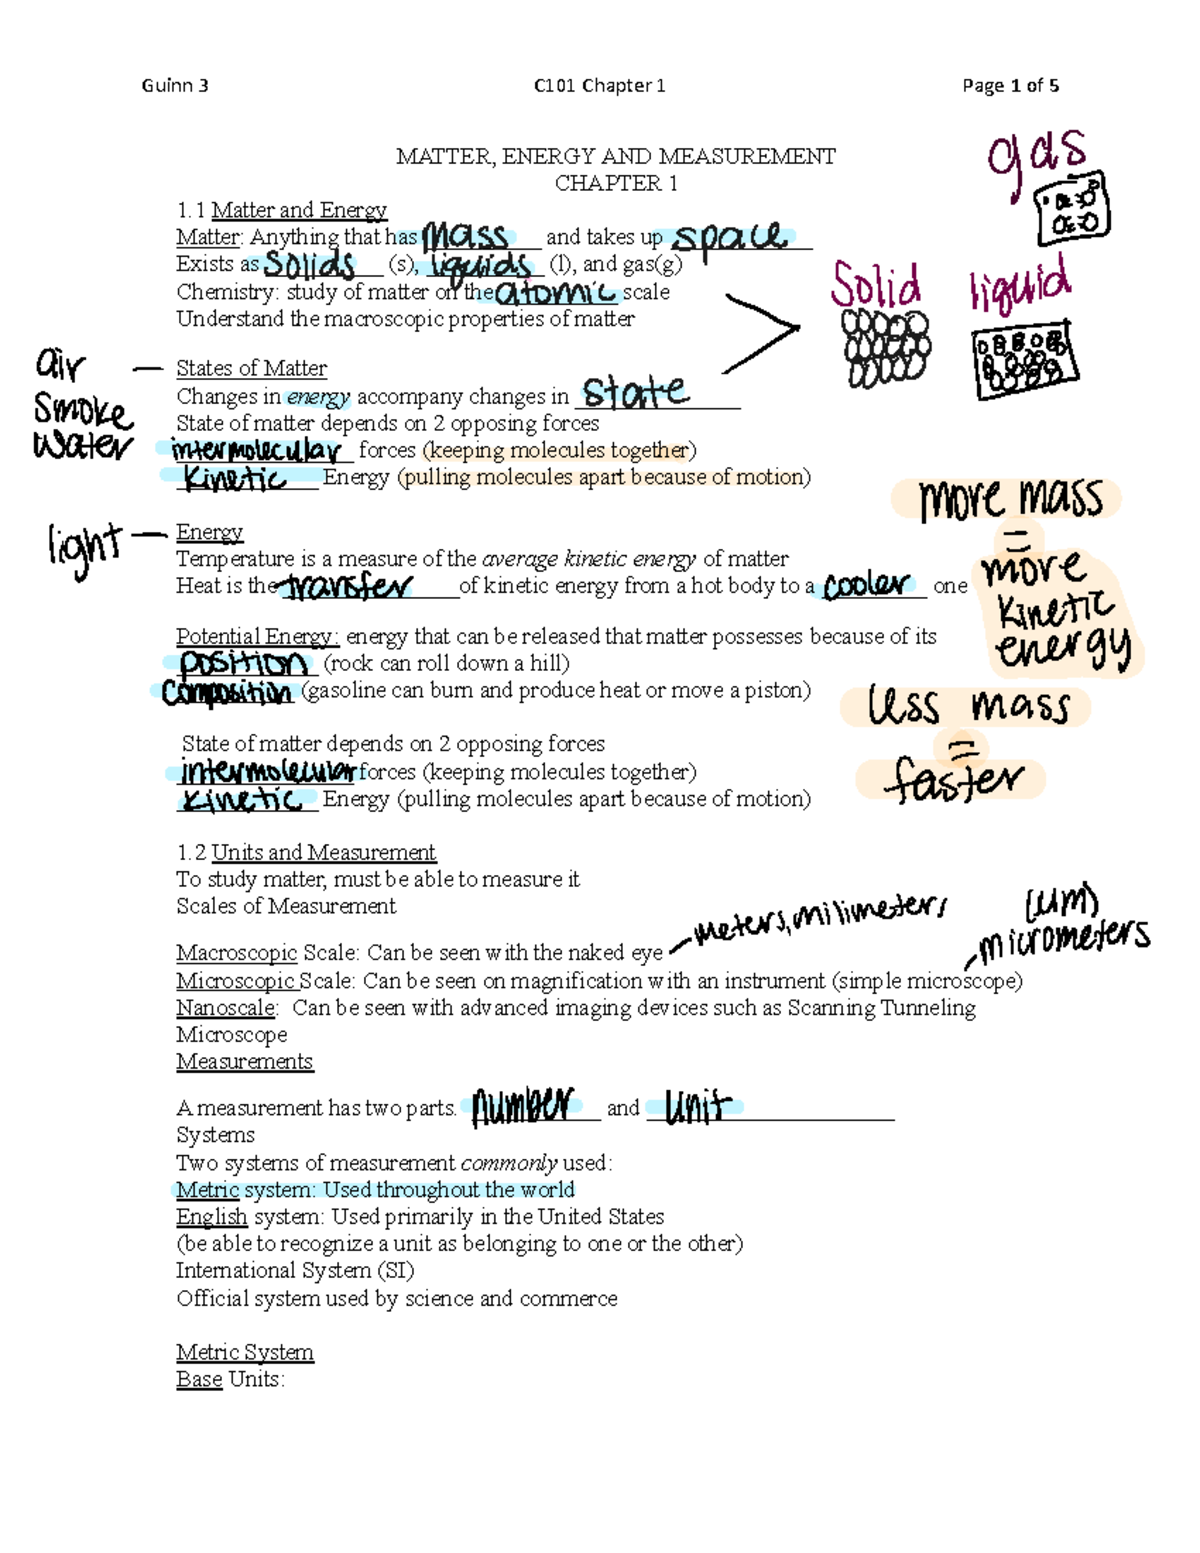 Guinn 3 C101 Chapter 1 Page 1 of 5
MATTER, ENERGY AND MEASUREMENT
CHAPTER 1
gas
1.1 Matter and Energy
Matter: Anything that has mass and takes up space
Exists as Solids (s), liquids (l), and gas(g)
Chemistry: study of matter on the atomic scale
Understand the macroscopic properties of matter
Solid liquid
air
smoke
water
States of Matter
Changes in energy accompany changes in state
State of matter depends on 2 opposing forces
intermolecular forces (keeping molecules together)
Kinetic Energy (pulling molecules apart because of motion)
more mass
=
more
kinetic
energy
light
Energy
Temperature is a measure of the average kinetic energy of matter
Heat is the transfer of kinetic energy from a hot body to a cooler one
Potential Energy: energy that can be released that matter possesses because of its
position (rock can roll down a hill)
Composition (gasoline can burn and produce heat or move a piston)
less mass
=
faster
State of matter depends on 2 opposing forces
intermolecular forces (keeping molecules together)
Kinetic Energy (pulling molecules apart because of motion)
1.2 Units and Measurement
To study matter, must be able to measure it
Scales of Measurement
meters, milimeters
(μm)
micrometers
Macroscopic Scale: Can be seen with the naked eye
Microscopic Scale: Can be seen on magnification with an instrument (simple microscope)
Nanoscale: Can be seen with advanced imaging devices such as Scanning Tunneling
Microscope
Measurements
A measurement has two parts. number and unit
Systems
Two systems of measurement commonly used:
Metric system: Used throughout the world
English system: Used primarily in the United States
(be able to recognize a unit as belonging to one or the other)
International System (SI)
Official system used by science and commerce
Metric System
Base Units: